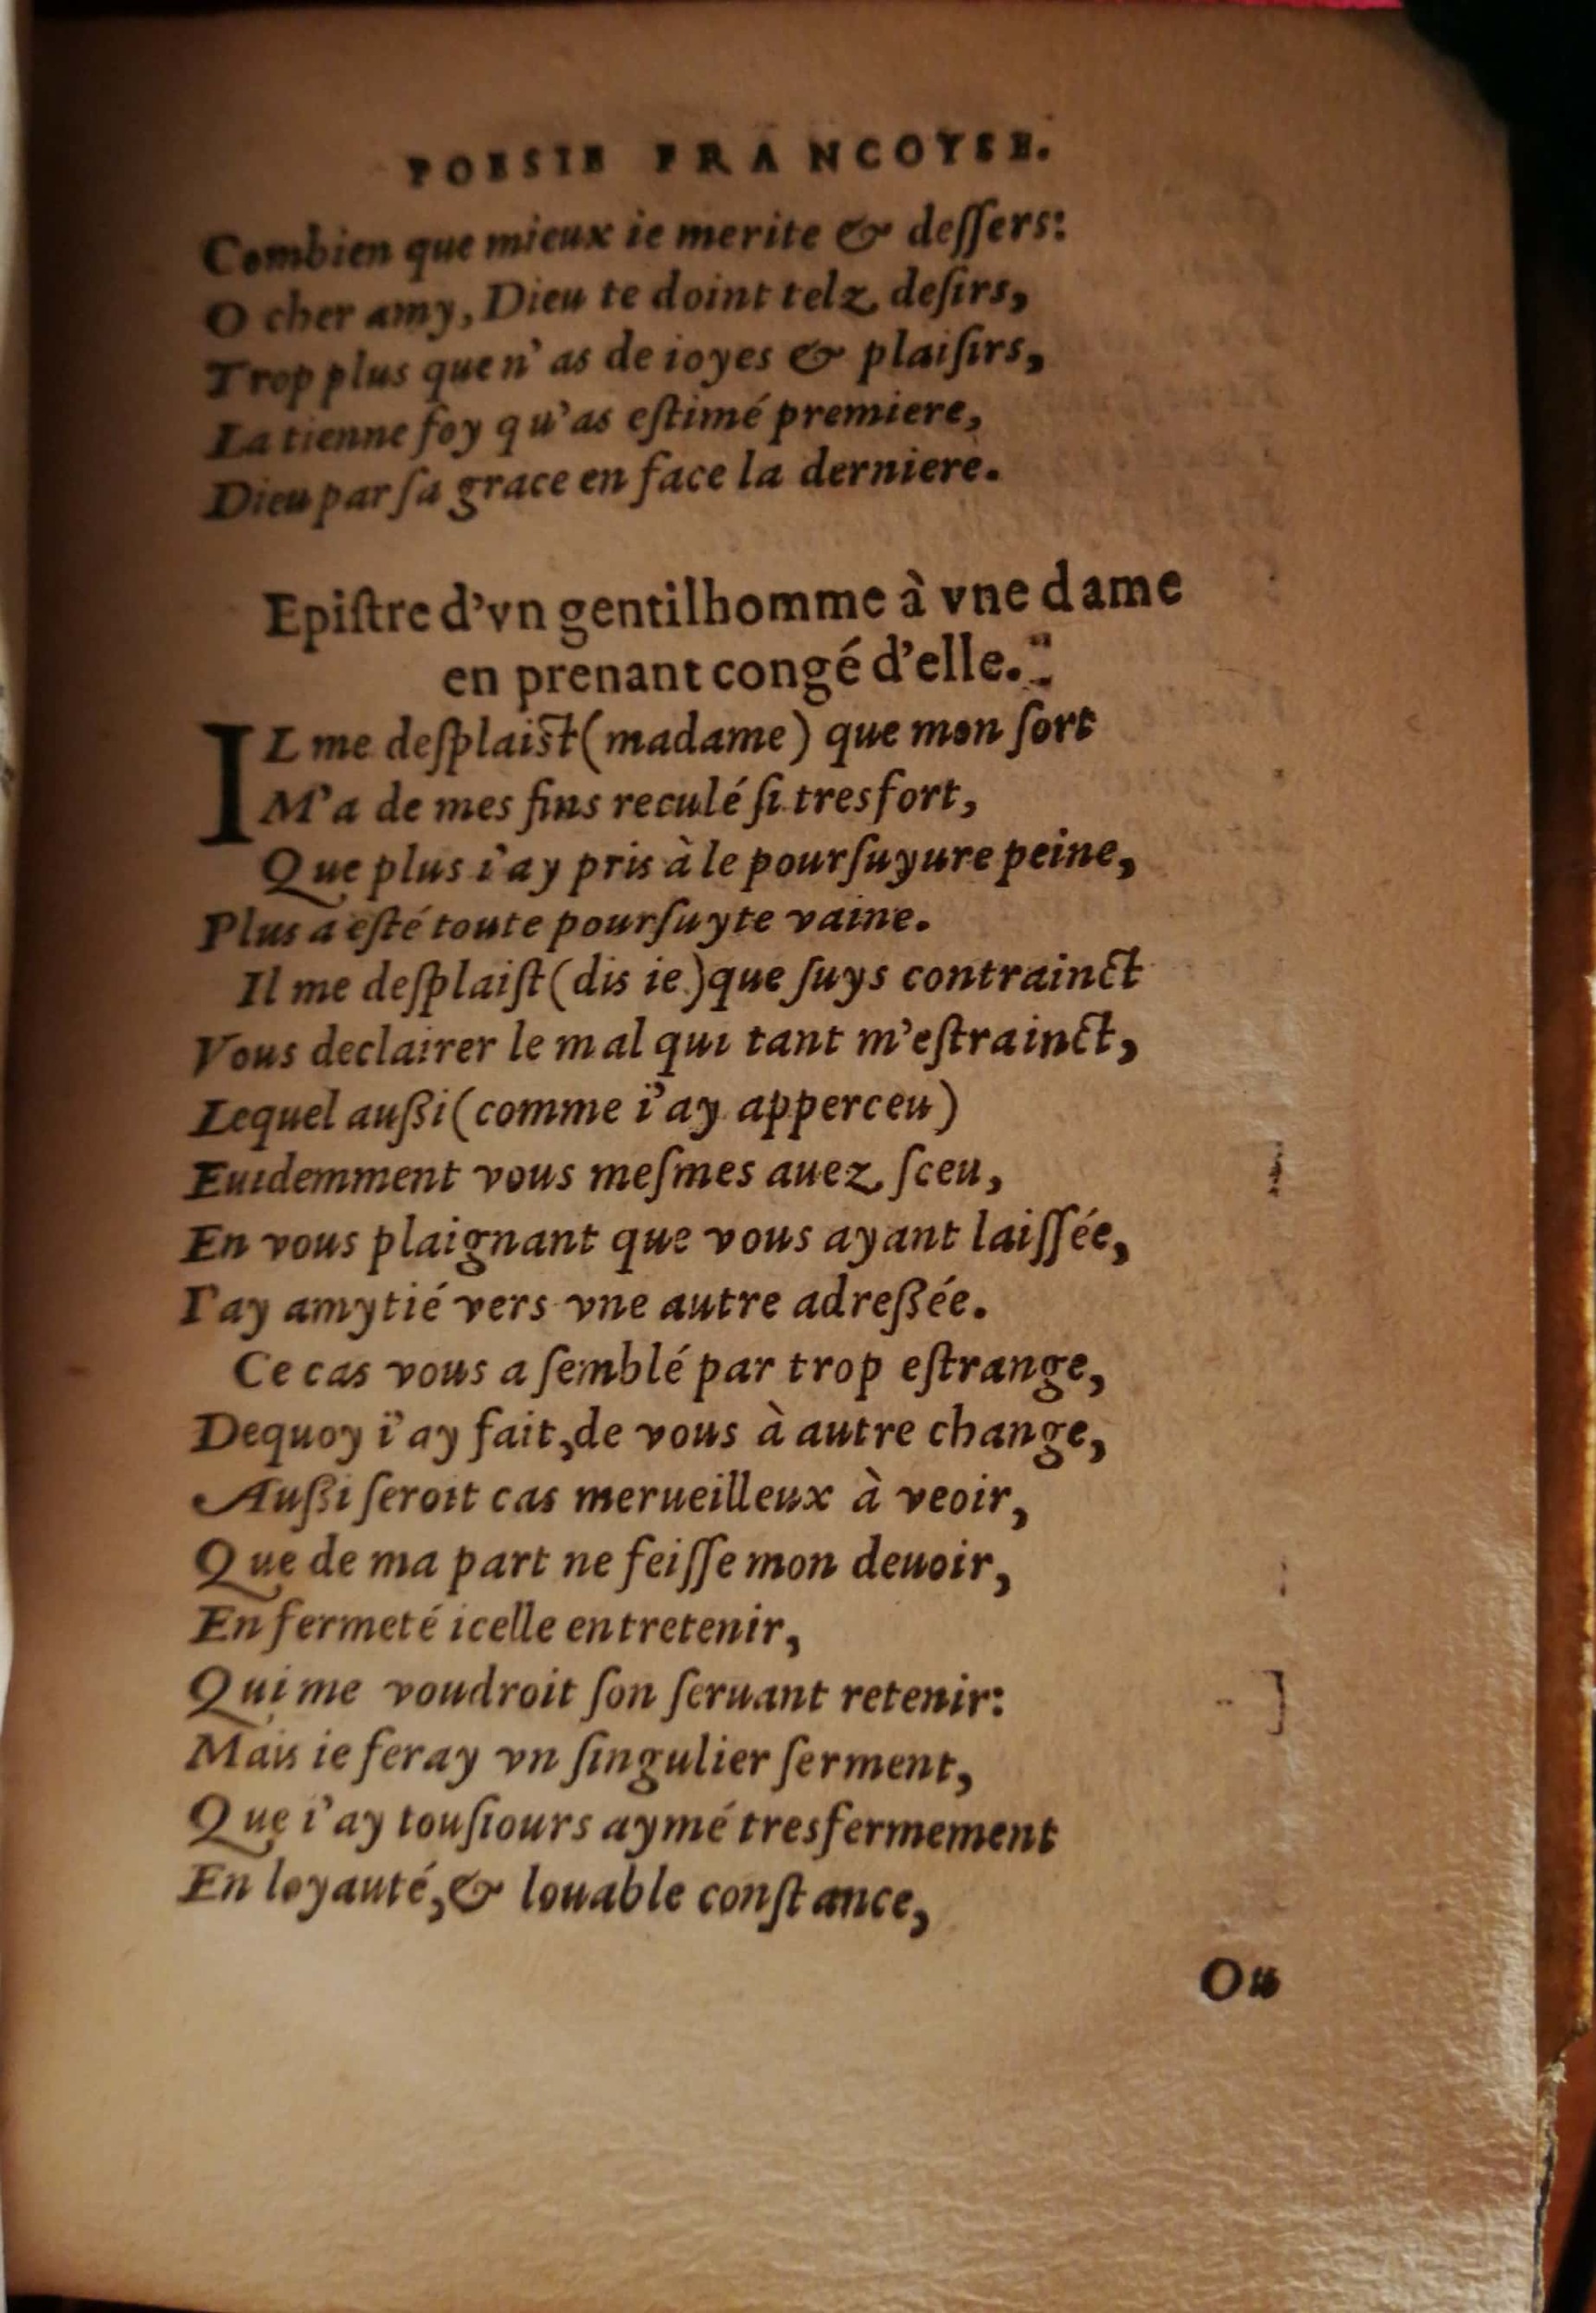 POESIE FRANCOYSE.
Combien que mieux ie merite & deſſers:
O cher amy, Dieu te doint telz deſirs,
Trop plus que n'as de ioyes & plaiſirs,
La tienne foy qu'as eſtimé premiere,
Dieu par ſa grace en face la derniere.
Epiſtre d'vn gentilhomme à vne dame
en prenant congé d'elle.
IL me deſplaiſt (madame) que mon ſort
M'a de mes fins reculé ſi tresfort,
Que plus i'ay pris à le pourſuyure peine,
Plus a eſté toute pourſuyte vaine.
Il me deſplaiſt (dis ie) que ſuys contrainct
Vous declairer le mal qui tant m'eſtrainct,
Lequel außi (comme i'ay apperceu)
Euidemment vous meſmes auez ſceu,
En vous plaignant que vous ayant laiſſée,
I'ay amytié vers vne autre adreßée.
Ce cas vous a ſemblé par trop eſtrange,
Dequoy i'ay fait, de vous à autre change,
Außi ſeroit cas merueilleux à veoir,
Que de ma part ne feiſſe mon deuoir,
En fermeté icelle entretenir,
Qui me voudroit ſon ſeruant retenir:
Mais ie feray vn ſingulier ſerment,
Que i'ay touſiours aymé tresfermement
En loyauté, & louable conſtance,
Ou